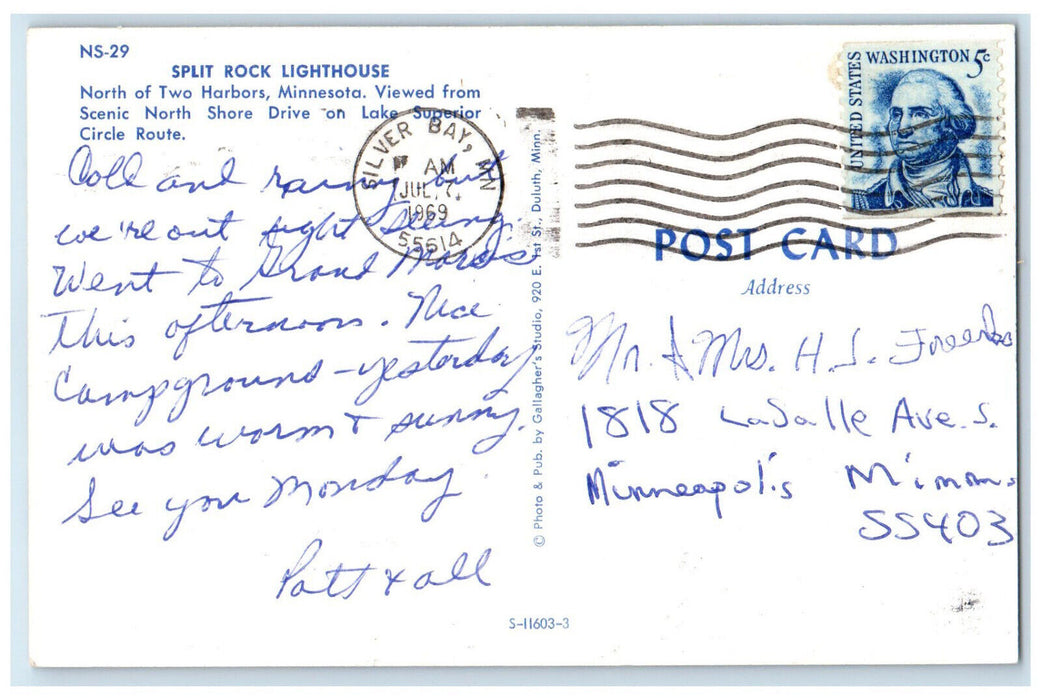 NS-29
SPLIT ROCK LIGHTHOUSE
North of Two Harbors, Minnesota. Viewed from
Scenic North Shore Drive on Lake Superior
Circle Route.
Cold and rainy but
we're out sight seeing.
Went to Grand Marais
this afternoon. Nice
Campground - yesterday
was warm & sunny.
See you Monday.
Patt & all
SILVER BAY, MN
AM
JUL 7
1969
55614
© Photo & Pub. by Gallagher's Studio, 920 E. 1st St., Duluth, Minn.
S-11603-3
UNITED STATES
WASHINGTON 5c
POST CARD
Address
Mr. & Mrs. H. L.
1818 LaSalle Ave. S.
Minneapolis Minn.
55403